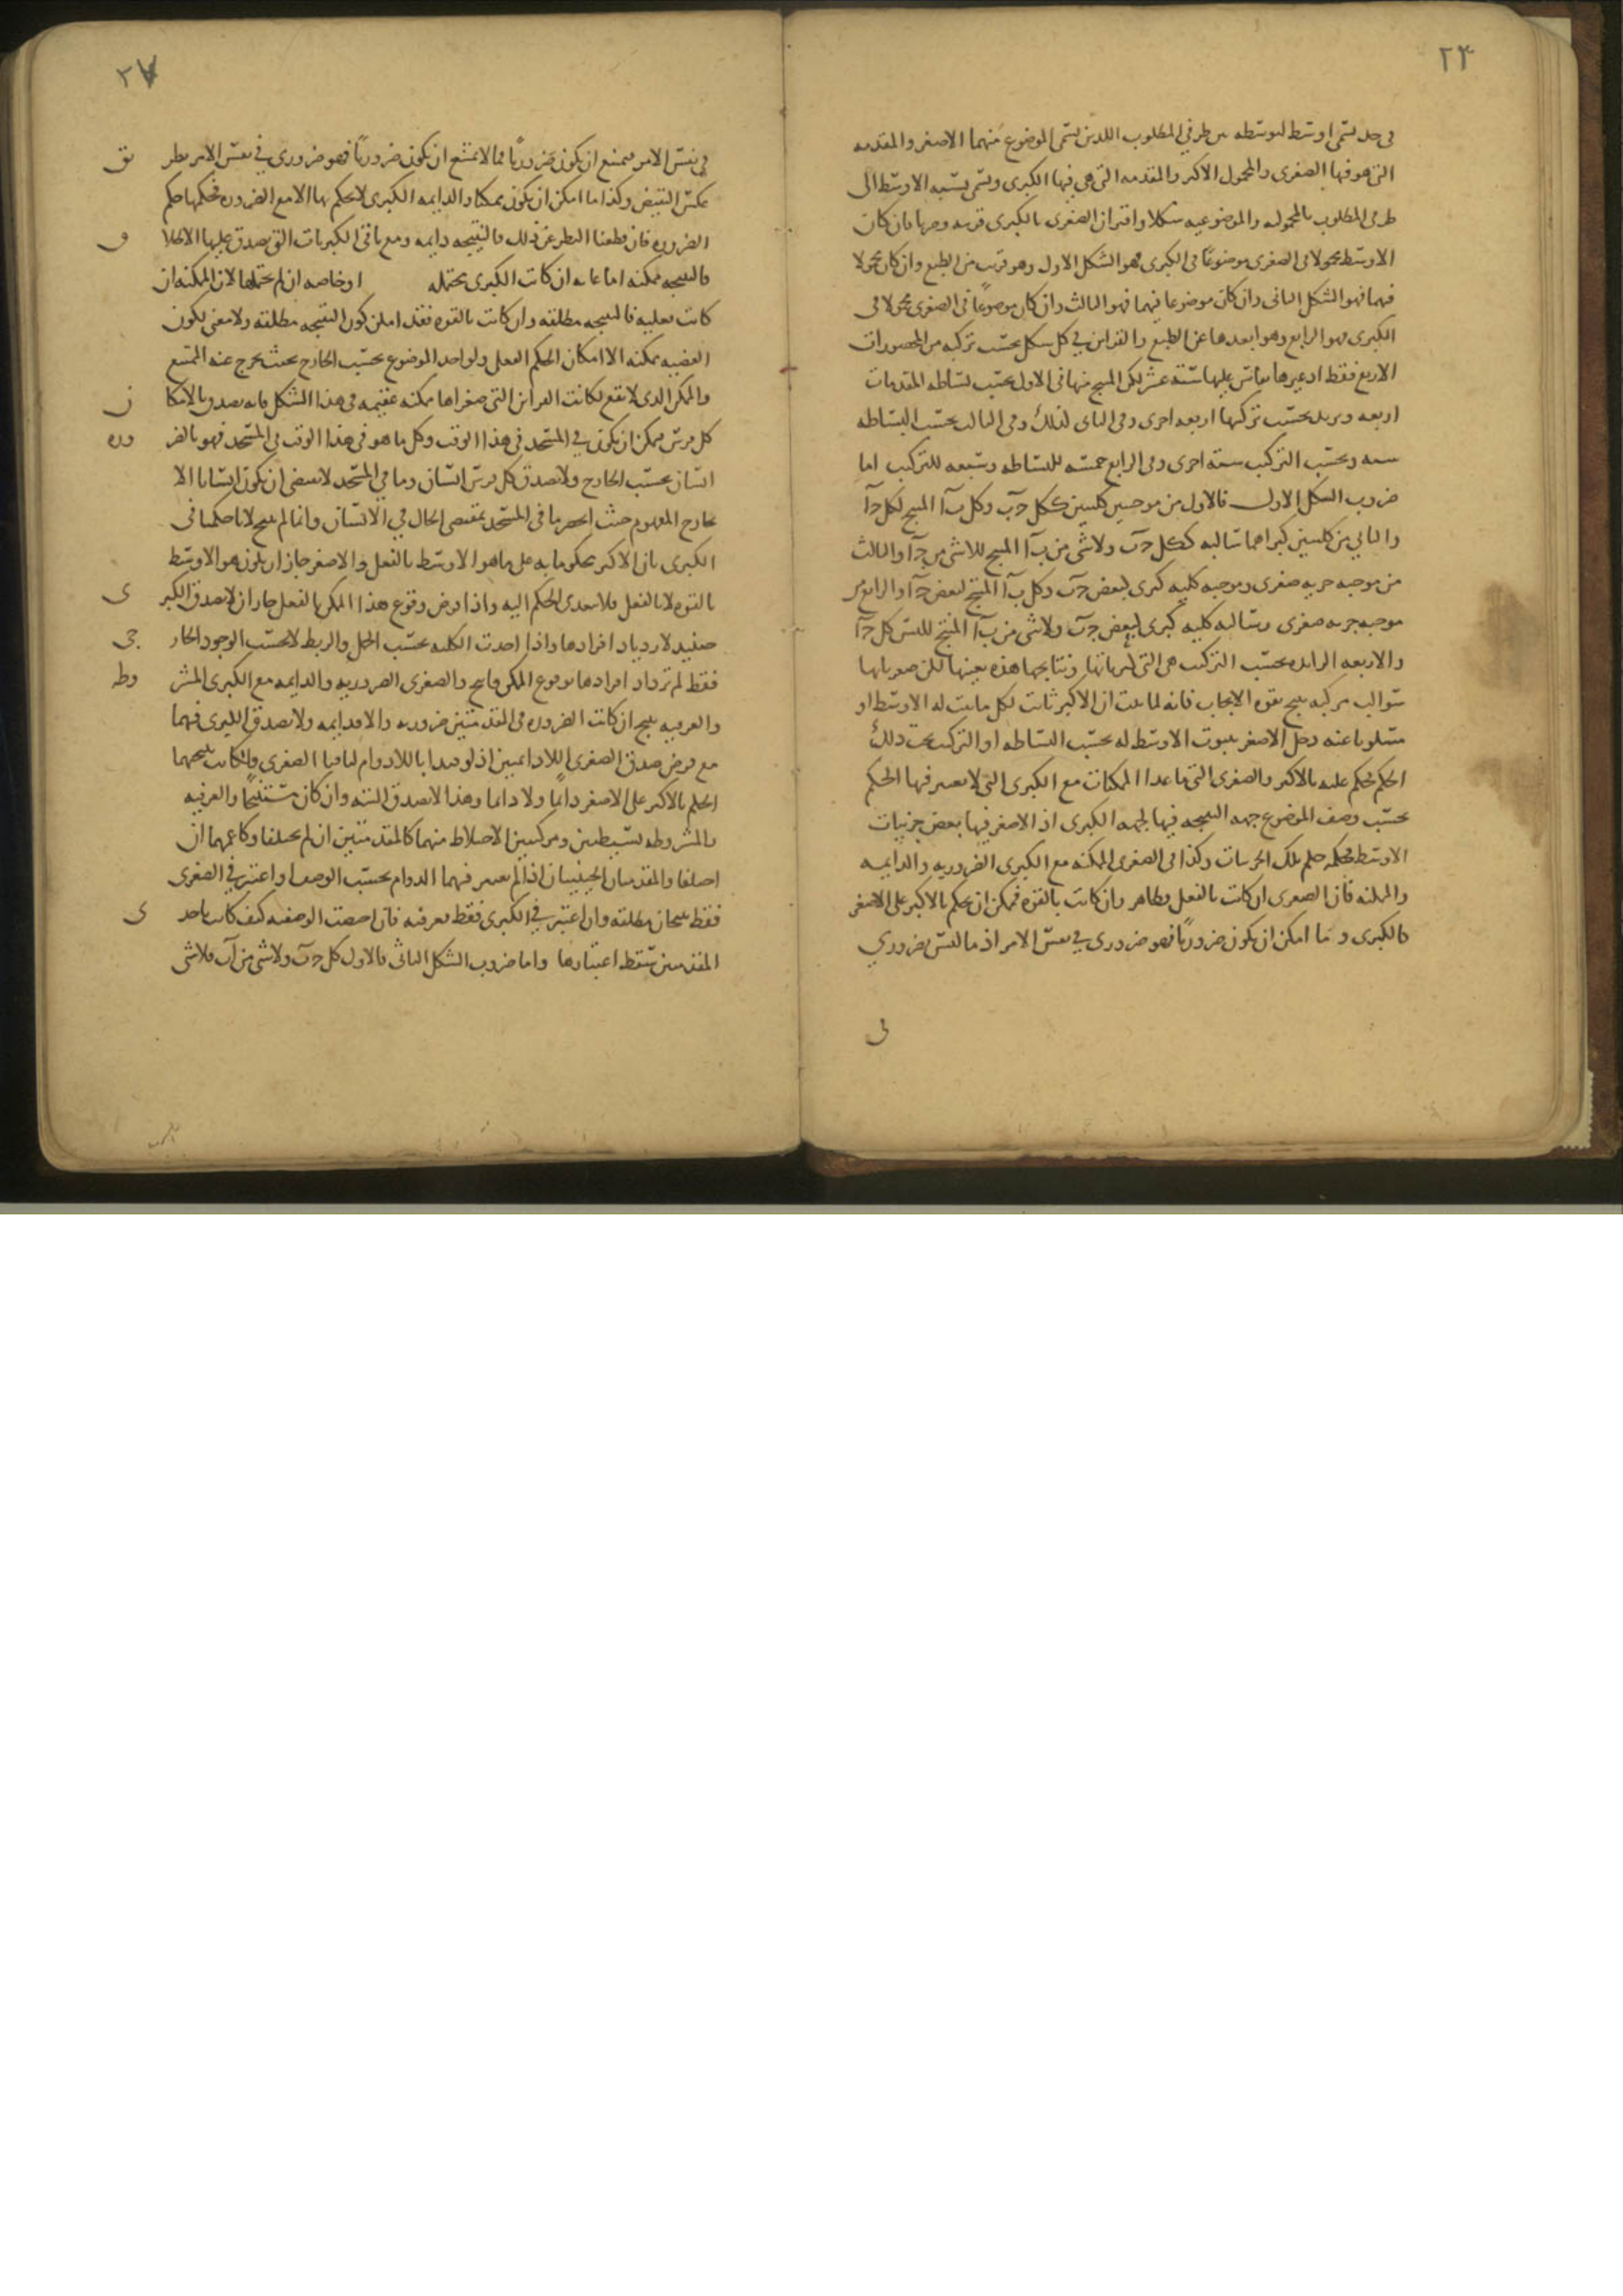 ٢٣
في حد يسمى اوسط لتوسطه بين طرفي المطلوب اللذين يسمى الموضوع منهما الاصغر والمقدمه
التي هو فيها الصغرى والمحمول الاكبر والمقدمه التي هي فيها الكبرى ويسمى نسبه الاوسط الى
طرفي المطلوب بالمحموليه والموضوعيه شكلا واقتران الصغرى بالكبرى قرينه وضربا فان كان
الاوسط محمولا في الصغرى موضوعا في الكبرى فهو الشكل الاول وهو قريب من الطبع وان كان محمولا
فيهما فهو الشكل الثاني وان كان موضوعا فيهما فهو الثالث وان كان موضوعا في الصغرى محمولا في
الكبرى فهو الرابع وهو ابعدها عن الطبع والقراين في كل شكل بحسب تركبه من المحصورات
الاربع فقط او غيرها يقاس عليها ستة عشر لكن المنتج منها في الاول بحسب بساطه المقدمات
اربعه ويزيد بحسب تركبها اربعه اخرى وفي الثاني كذلك وفي الثالث بحسب البساطه
سته وبحسب التركيب سته اخرى وفي الرابع خمسه للبساطه وسبعه للتركيب اما
ضروب الشكل الاول فالاول من موجبتين كليتين ككل جَ بَ وكل بَ آ المنتج لكل جَ آ
والثاني من كليتين كبراهما سالبه ككل جَ بَ ولا شى من بَ آ المنتج للاشى من جَ آ والثالث
من موجبه جزيه صغرى وموجبه كليه كبرى لبعض جَ بَ وكل بَ آ المنتج لبعض جَ آ والرابع من
موجبه جزيه صغرى وسالبه كليه كبرى لبعض جَ بَ ولا شى من بَ آ المنتج لليس كل جَ آ
والاربعه الزايده بحسب التركيب هي التي ونتايجها هذه بعينها لكن صغرياتها
سوالب مركبه ينتج بقوه الايجاب فانه لما ثبت ان الاكبر ثابت لكل ما ثبت له الاوسط او
مسلوبا عنه دخل الاصغر بثبوت الاوسط له بحسب البساطه او التركيب تحت ذلك
الحكم فحكم عليه بالاكبر والصغرى التي ما عدا الممكنات مع الكبرى التي لا يعتبر فيها الحكم
بحسب وصف الموضوع جهه النتيجه فيها كجهه الكبرى اذ الاصغر فيها بعض جزييات
الاوسط فحكمه حكم تلك الجزييات وكذا في الصغرى الممكنه مع الكبرى الضروريه والدايمه
والممكنه فان الصغرى ان كانت بالفعل فظاهر وان كانت بالقوه فممكن ان يحكم بالاكبر على الاصغر
كالكبرى وما امكن ان يكون ضروريا فهو ضروري في نفس الامر اذ ما ليس بضروري
في
٢٧
في نفس الامر يمتنع ان يكون ضروريا فما لا يمتنع ان يكون ضروريا فهو ضروري في نفس الامر بطر يق
عكس النقيض وكذا ما امكن ان يكون ممكنا والدايمه الكبرى لا يحكم بها الا مع الضروره فحكمها حكم
الضروره فان قطعنا النظر عن ذلك فالنتيجه دايمه ومع باقي الكبريات التي يصدق عليها الاطلا ق
فالنتيجه ممكنه اما عامه ان كانت الكبرى محتمله او خاصه ان لم تحتملها لان الممكنه ان
كانت فعليه فالنتيجه مطلقه وان كانت بالقوه فقد امكن كون النتيجه مطلقه ولا معنى لكون
القضيه ممكنه الا امكان الحكم الفعلي ولو اخذ الموضوع بحسب الخارج بحيث يخرج عنه الممتنع
والممكن الذي لا يقع لكانت القراين التي صغراها ممكنه عقيمه في هذا الشكل فانه يصدق بالامكا ن
كل فرس ممكن ان يكون في المسجد في هذا الوقت وكل ما هو في هذا الوقت في المسجد فهو بالضر وره
انسان بحسب الخارج ولا يصدق كل فرس انسان وما في المسجد لا يقتضي ان يكون انسانا الا
بخارج المفهوم حيث انحصر ما في المسجد بمقتضى الحال في الانسان وانما لم ينتج لانا حكمنا في
الكبرى بان الاكبر محكوما به على ما هو الاوسط بالفعل والاصغر جاز ان يكون هو الاوسط
بالقوه لا بالفعل فلا يتعدى الحكم اليه واذا فرض وقوع هذا الممكن بالفعل جاز ان لا يصدق الكبر ى
حينيذ لازدياد افرادها واذا اخذت الكليه بحسب الحمل والربط لا بحسب الوجود الخار جى
فقط لم تزداد افرادها بوقوع الممكن فانتج والصغرى الضروريه والدايمه مع الكبرى المشر وطه
والعرفيه ينتج ان كانت الضروره في المقدمتين ضروريه والا فدايمه ولا يصدق الكبرى فيهما
مع فرض صدق الصغرى اللادايمتين اذ لو قيدا باللادوام لنافيا الصغرى ولكانت نتيجتهما
الحكم بالاكبر على الاصغر دايما ولا دايما وهذا لا يصدق البته وان كان مستنتجا والعرفيه
والمشروطه بسيطتين ومركبتين الاختلاط منهما كالمقدمتين ان لم يختلفا وكاعمهما ان
اختلفا والمقدمتان الحينيتان اذا لم يعتبر فيهما الدوام بحسب الوصف او اعتبر في الصغرى
فقط ينتجان مطلقه وان اعتبر في الكبرى فقط فعرفيه فان اختصت الوصفيه كيف كانت باحد ى
المقدمتين سقط اعتبارها واما ضروب الشكل الثاني فالاول كل جَ بَ ولا شى من آ بَ فلا شى